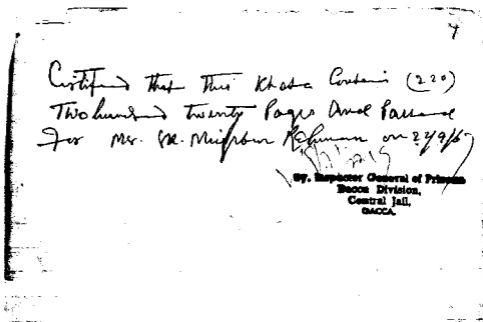 Certified that this Khata Contains (220)
Two hundred twenty Pages And Passed
For Mr. Sk. Mujibur Rahman on 22/9/67
Dy. Inspector General of Prisons
Dacca Division,
Central Jail,
DACCA.